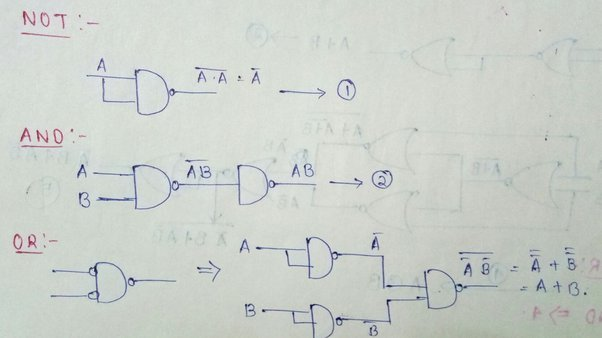 NOT :-
A
A̅ ̅·̅ ̅A̅ = A̅
⟶ ①
AND :-
A
B
A̅B̅
AB
⟶ ②
OR :-
⇒
A
A̅
B
B̅
A̿ ̅B̿ = A̿ + B̿
= A + B.